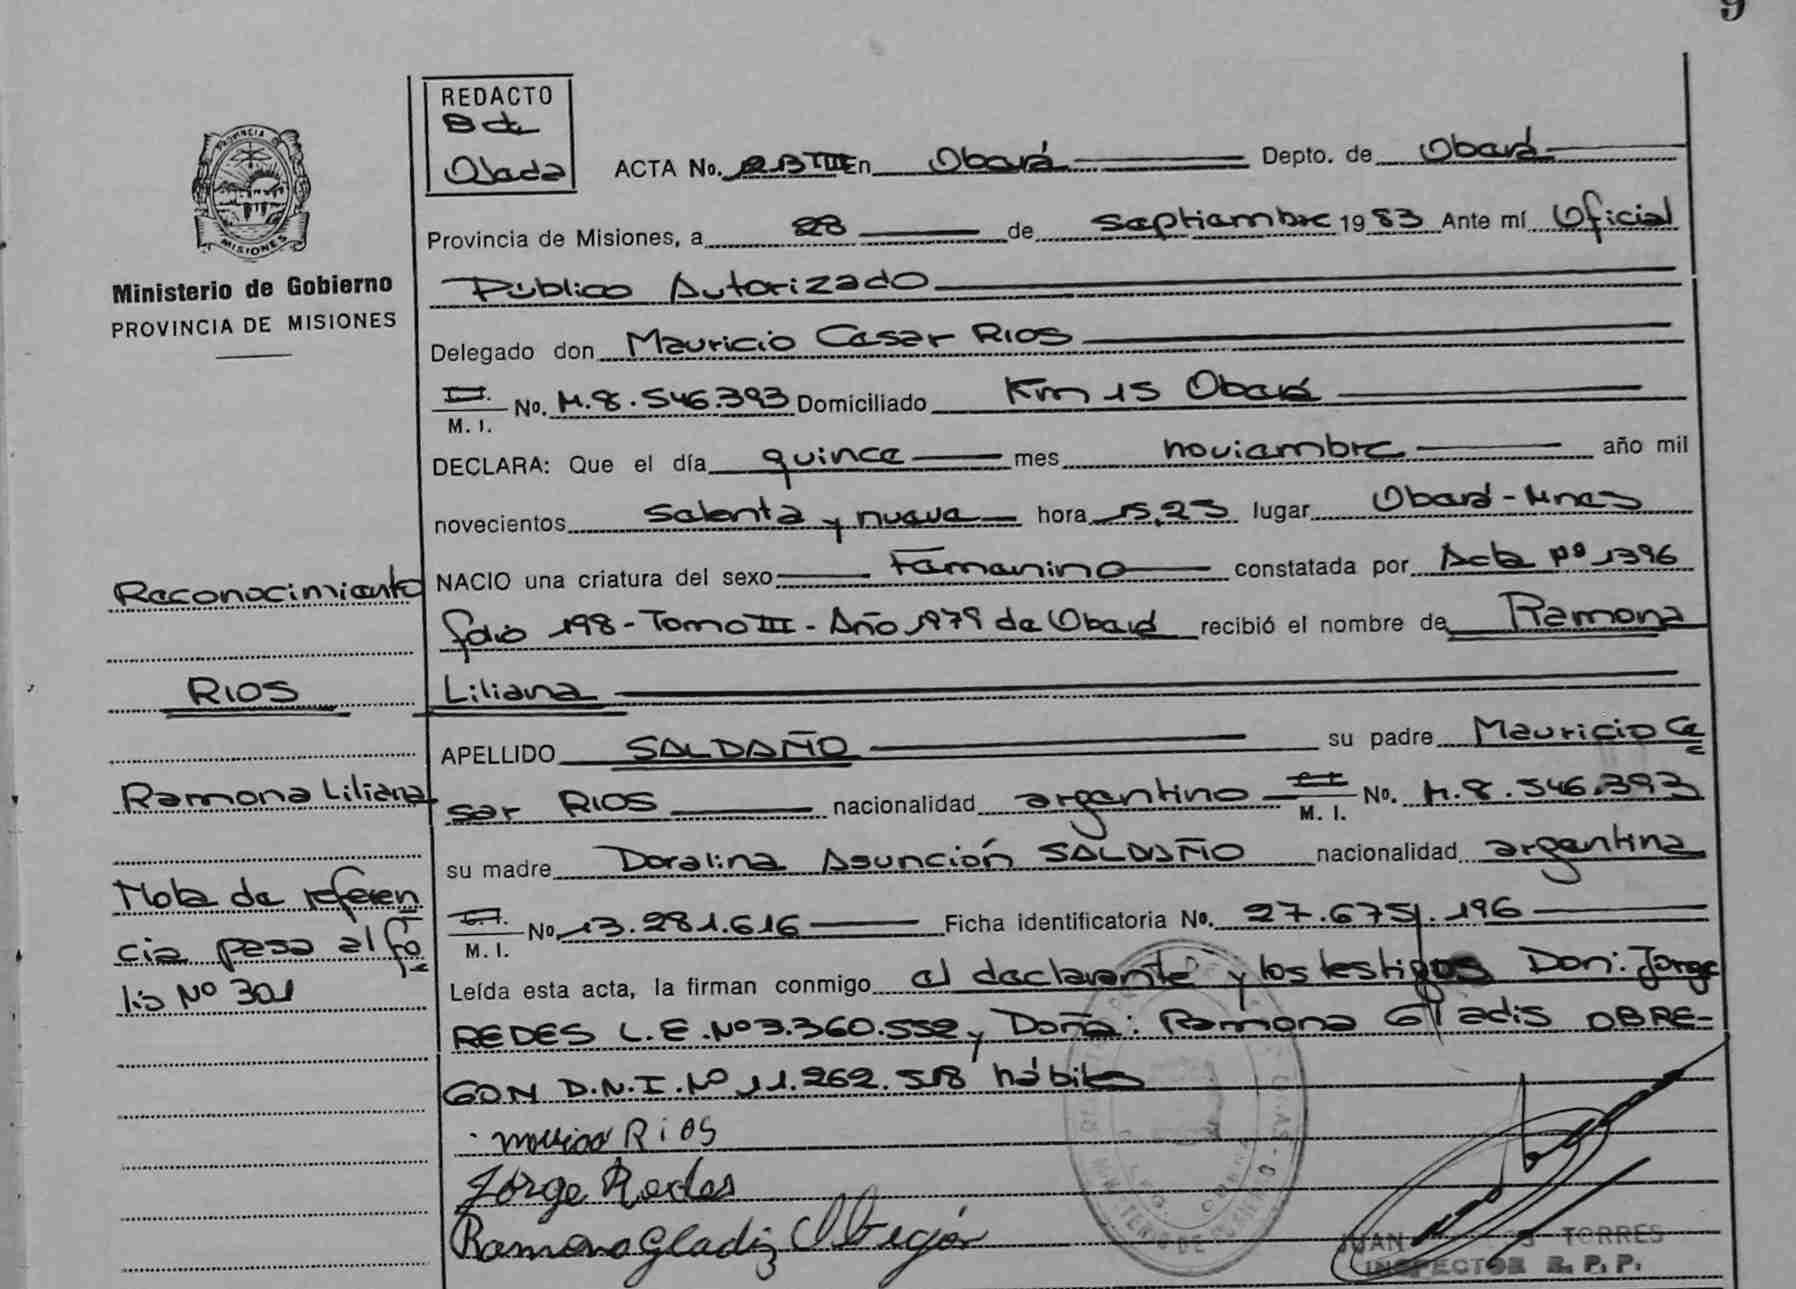 9
REDACTO
ACTA No. 2B III En Oberá Depto. de Oberá
PROVINCIA DE
MISIONES
Provincia de Misiones, a 28 de septiembre 1983 Ante mí Oficial
Ministerio de Gobierno
PROVINCIA DE MISIONES
Público Autorizado
Delegado don Mauricio Cesar RIOS
M. I. No. M.8.546.393 Domiciliado Km 15 Oberá
DECLARA: Que el día quince mes noviembre año mil
novecientos setenta y nueve hora 15,25 lugar Oberá-Mnes
Reconocimiento
NACIO una criatura del sexo Femenino constatada por Acta Nº 1396
folio 198-Tomo III-Año 1979 de Oberá recibió el nombre de Ramona
RIOS
Liliana
APELLIDO SALDAÑO su padre Mauricio Ce
Ramona Liliana
sar RIOS nacionalidad argentino M. I. No. M.8.546.393
su madre Doralina Asunción SALDAÑO nacionalidad argentina
Nota de referen
cia pasa al fo
lio Nº 301
M. I. No. 13.281.616 Ficha identificatoria No. 27.675.196
Leída esta acta, la firman conmigo el declarante y los testigos Don: Jorge
REDES L.E.Nº 3.360.552 y Doña: Ramona Gladis OBRE-
GON D.N.I.Nº 11.262.518 hábiles
Rios
Jorge Redes
Ramona Gladiz Obregón
JUAN TORRES
INSPECTOR R. P. P.